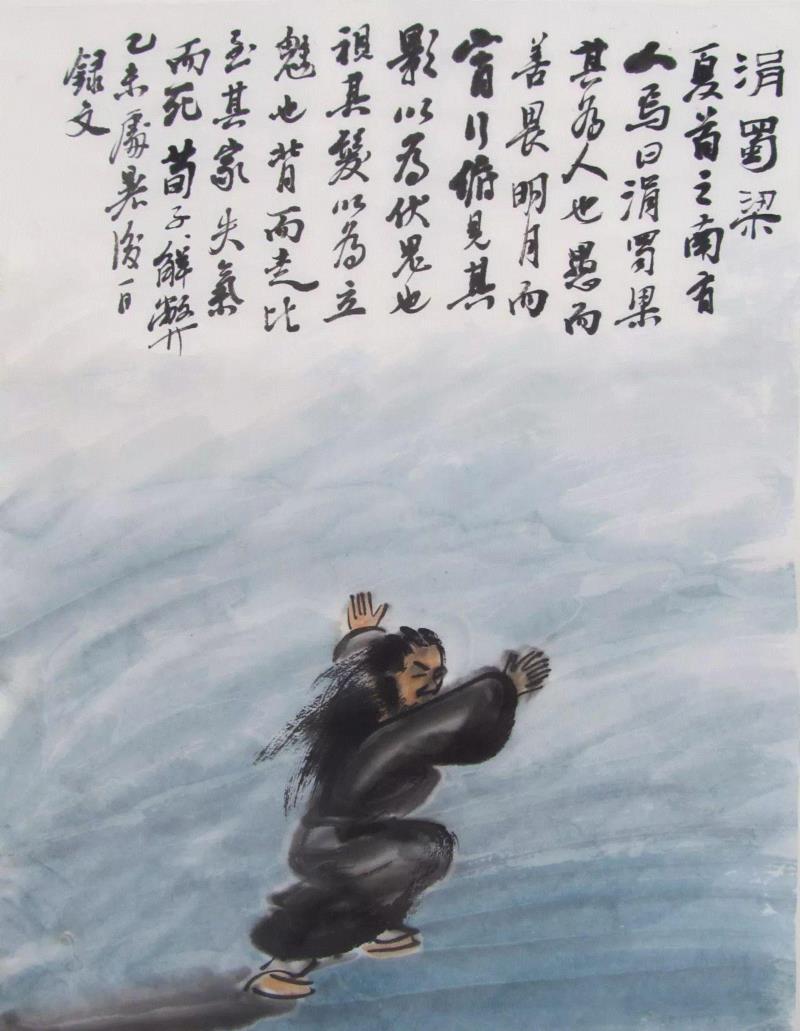 涓蜀梁
夏首之南有
人焉曰涓蜀梁
其為人也愚而
善畏明月而
宵行俯見其
影以為伏鬼也
視其髮以為立
魅也背而走比
至其家失氣
而死荀子解弊
乙未處暑後一日
録文